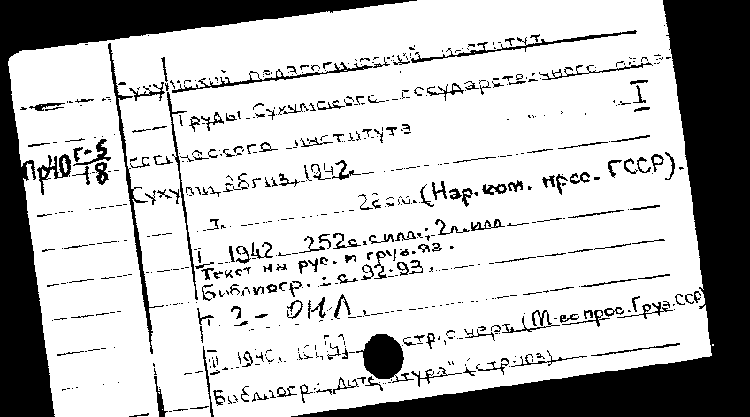 Сухумский педагогический институт.
Труды Сухумского государственного педа-
гогического института I
Пр40 Г-5/18
Сухуми, Абгиз, 1942.
т. 26 см. (Нар. ком. прос. ГССР).
I. 1942. 252 с. с илл.; 2 л. илл.
Текст на рус. и груз. яз.
Библиогр.: с. 92-93.
т 2 - ОИЛ.
III. 194 стр. с черт. (М-во прос. Груз. ССР)
Библиогр. „Литература" (стр. 103).